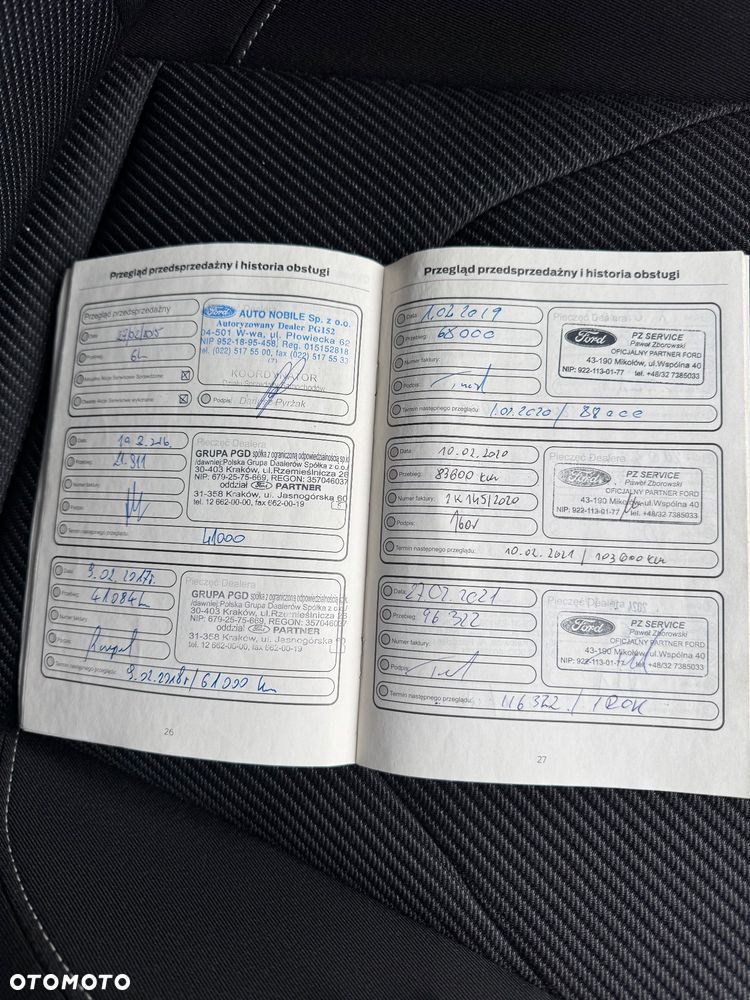 Przegląd przedsprzedażny i historia obsługi
Przegląd przedsprzedażny
Data:
Przebieg: 6L
Aktualne Akcje Serwisowe Sprawdzone:
Otwarte Akcje Serwisowe wykonane:
Ford AUTO NOBILE Sp. z o.o.
Autoryzowany Dealer PG152
04-501 W-wa, ul. Płowiecka 62
NIP 952-18-95-458, Reg. 015152818
tel. (022) 517 55 00, fax (022) 517 55 33
KOORDYNATOR
Podpis: Pyrżak
Data:
Przebieg: 21.911
Numer faktury:
Podpis:
Termin następnego przeglądu: 41000
Pieczęć Dealera
GRUPA PGD spółka z ograniczoną odpowiedzialnością sp.k.
/dawniej:Polska Grupa Dealerów Spółka z o.o./
30-403 Kraków, ul.Rzemieślnicza 26
NIP: 679-25-75-669, REGON: 357046037
oddział Ford PARTNER
31-358 Kraków, ul. Jasnogórska 60
tel. 12 662-00-00, fax 662-00-19
5
Data: 9.02.2017r.
Przebieg: 41084k
Numer faktury:
Podpis:
Termin następnego przeglądu: 9.02.2018r/61000 km
Pieczęć Dealera
GRUPA PGD spółka z ograniczoną odpowiedzialnością sp.k.
/dawniej:Polska Grupa Dealerów Spółka z o.o./
30-403 Kraków, ul.Rzemieślnicza 26
NIP: 679-25-75-669, REGON: 357046037
oddział Ford PARTNER
31-358 Kraków, ul. Jasnogórska 60
tel. 12 662-00-00, fax 662-00-19
26
Przegląd przedsprzedażny i historia obsługi
Data: 1.02.2019
Przebieg: 68000
Numer faktury:
Podpis:
Termin następnego przeglądu: 1.02.2020 / 88000
Pieczęć Dealera
Ford PZ SERVICE
Paweł Zborowski
OFICJALNY PARTNER FORD
43-190 Mikołów, ul.Wspólna 40
NIP: 922-113-01-77 tel. +48/32 7385033
Data: 10.02.2020
Przebieg: 83600 km
Numer faktury: 2K145/2020
Podpis:
Termin następnego przeglądu: 10.02.2021 / 103600km
Pieczęć Dealera
Ford PZ SERVICE
Paweł Zborowski
OFICJALNY PARTNER FORD
43-190 Mikołów, ul.Wspólna 40
NIP: 922-113-01-77 tel. +48/32 7385033
Data: 27.02.2021
Przebieg: 96322
Numer faktury:
Podpis:
Termin następnego przeglądu: 116322 / 1ROK
Pieczęć Dealera
Ford PZ SERVICE
Paweł Zborowski
OFICJALNY PARTNER FORD
43-190 Mikołów, ul.Wspólna 40
NIP: 922-113-01-77 tel. +48/32 7385033
27
OTOMOTO